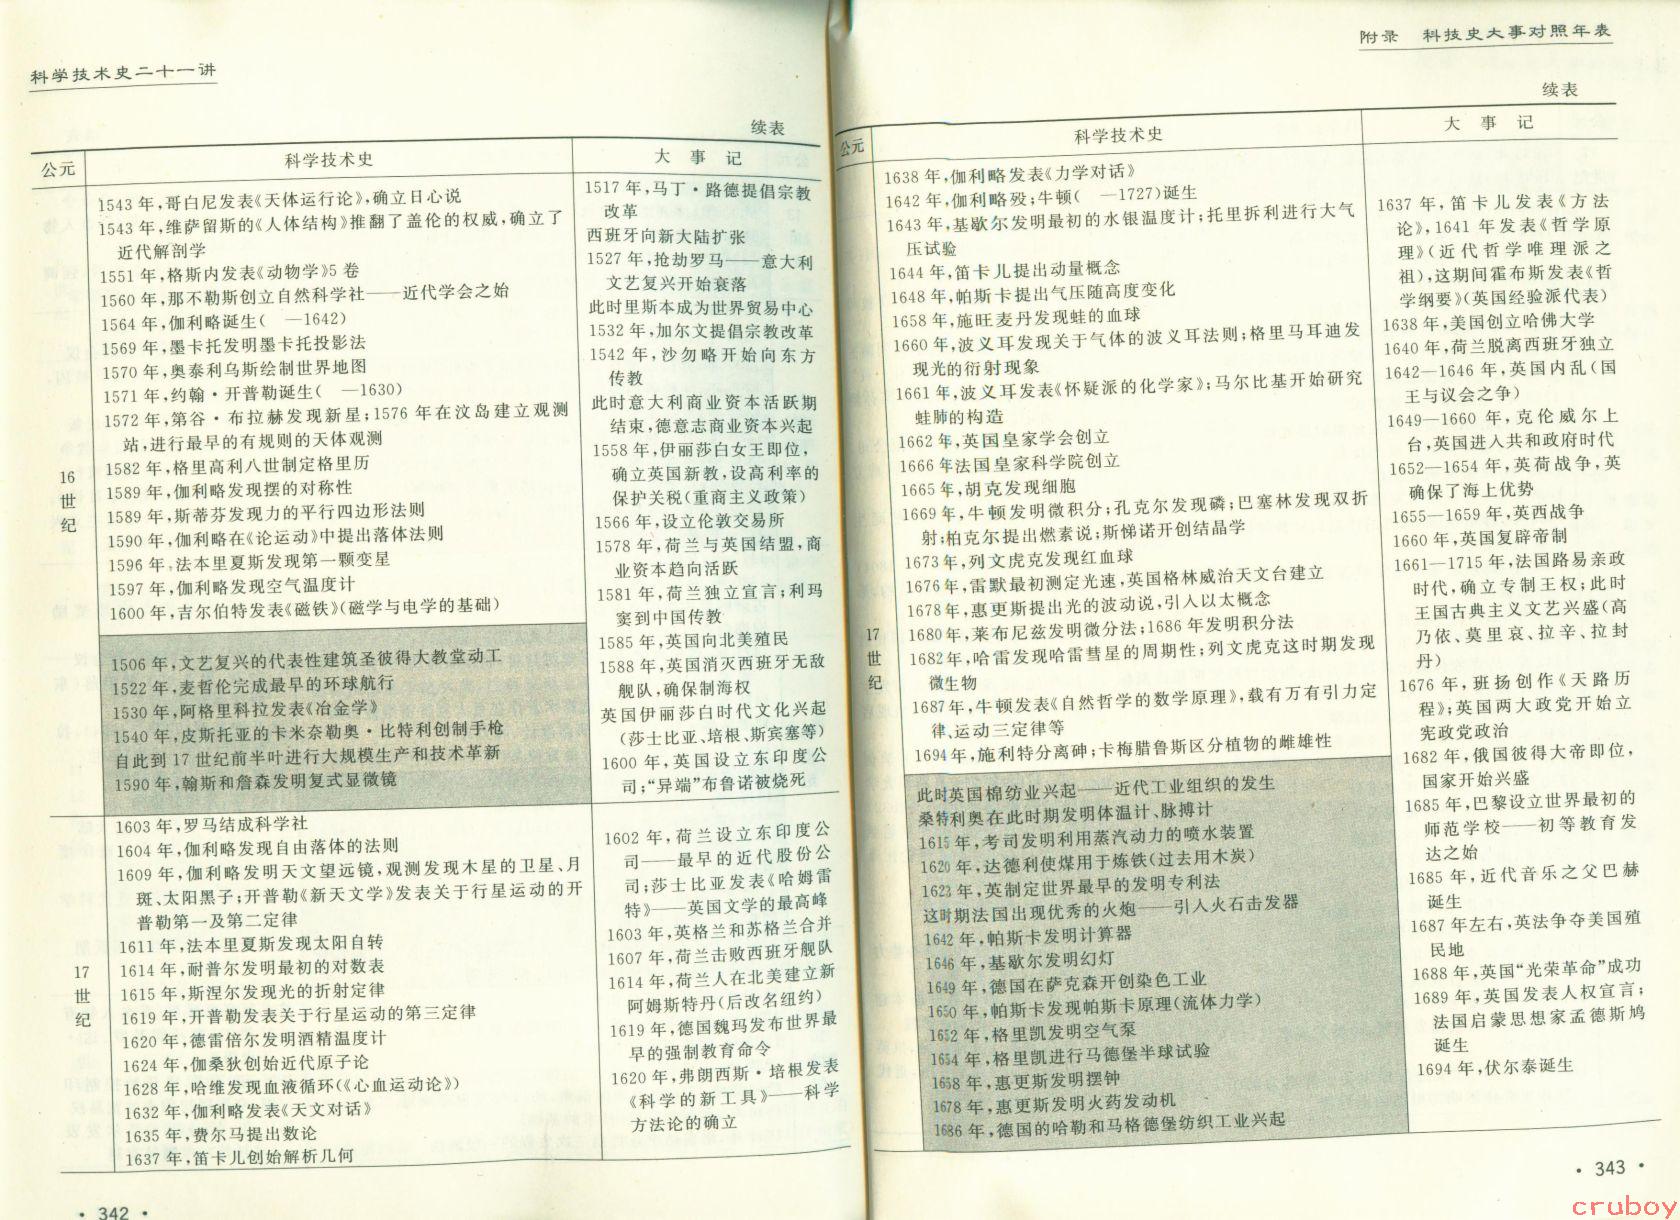 科学技术史二十一讲
续表
公元
科学技术史
大 事 记
16
世
纪
1543 年,哥白尼发表《天体运行论》,确立日心说
1543 年,维萨留斯的《人体结构》推翻了盖伦的权威,确立了
近代解剖学
1551 年,格斯内发表《动物学》5 卷
1560 年,那不勒斯创立自然科学社——近代学会之始
1564 年,伽利略诞生( —1642)
1569 年,墨卡托发明墨卡托投影法
1570 年,奥泰利乌斯绘制世界地图
1571 年,约翰·开普勒诞生( —1630)
1572 年,第谷·布拉赫发现新星;1576 年在汶岛建立观测
站,进行最早的有规则的天体观测
1582 年,格里高利八世制定格里历
1589 年,伽利略发现摆的对称性
1589 年,斯蒂芬发现力的平行四边形法则
1590 年,伽利略在《论运动》中提出落体法则
1596 年,法本里夏斯发现第一颗变星
1597 年,伽利略发现空气温度计
1600 年,吉尔伯特发表《磁铁》(磁学与电学的基础)
1506 年,文艺复兴的代表性建筑圣彼得大教堂动工
1522 年,麦哲伦完成最早的环球航行
1530 年,阿格里科拉发表《冶金学》
1540 年,皮斯托亚的卡米奈勒奥·比特利创制手枪
自此到 17 世纪前半叶进行大规模生产和技术革新
1590 年,翰斯和詹森发明复式显微镜
1517 年,马丁·路德提倡宗教
改革
西班牙向新大陆扩张
1527 年,抢劫罗马——意大利
文艺复兴开始衰落
此时里斯本成为世界贸易中心
1532 年,加尔文提倡宗教改革
1542 年,沙勿略开始向东方
传教
此时意大利商业资本活跃期
结束,德意志商业资本兴起
1558 年,伊丽莎白女王即位,
确立英国新教,设高利率的
保护关税(重商主义政策)
1566 年,设立伦敦交易所
1578 年,荷兰与英国结盟,商
业资本趋向活跃
1581 年,荷兰独立宣言;利玛
窦到中国传教
1585 年,英国向北美殖民
1588 年,英国消灭西班牙无敌
舰队,确保制海权
英国伊丽莎白时代文化兴起
(莎士比亚、培根、斯宾塞等)
1600 年,英国设立东印度公
司;“异端”布鲁诺被烧死
17
世
纪
1603 年,罗马结成科学社
1604 年,伽利略发现自由落体的法则
1609 年,伽利略发明天文望远镜,观测发现木星的卫星、月
斑、太阳黑子;开普勒《新天文学》发表关于行星运动的开
普勒第一及第二定律
1611 年,法本里夏斯发现太阳自转
1614 年,耐普尔发明最初的对数表
1615 年,斯涅尔发现光的折射定律
1619 年,开普勒发表关于行星运动的第三定律
1620 年,德雷倍尔发明酒精温度计
1624 年,伽桑狄创始近代原子论
1628 年,哈维发现血液循环(《心血运动论》)
1632 年,伽利略发表《天文对话》
1635 年,费尔马提出数论
1637 年,笛卡儿创始解析几何
1602 年,荷兰设立东印度公
司——最早的近代股份公
司;莎士比亚发表《哈姆雷
特》——英国文学的最高峰
1603 年,英格兰和苏格兰合并
1607 年,荷兰击败西班牙舰队
1614 年,荷兰人在北美建立新
阿姆斯特丹(后改名纽约)
1619 年,德国魏玛发布世界最
早的强制教育命令
1620 年,弗朗西斯·培根发表
《科学的新工具》——科学
方法论的确立
· 342 ·
附录 科技史大事对照年表
续表
公元
科学技术史
大 事 记
17
世
纪
1638 年,伽利略发表《力学对话》
1642 年,伽利略殁;牛顿( —1727)诞生
1643 年,基歇尔发明最初的水银温度计;托里拆利进行大气
压试验
1644 年,笛卡儿提出动量概念
1648 年,帕斯卡提出气压随高度变化
1658 年,施旺麦丹发现蛙的血球
1660 年,波义耳发现关于气体的波义耳法则;格里马耳迪发
现光的衍射现象
1661 年,波义耳发表《怀疑派的化学家》;马尔比基开始研究
蛙肺的构造
1662 年,英国皇家学会创立
1666 年法国皇家科学院创立
1665 年,胡克发现细胞
1669 年,牛顿发明微积分;孔克尔发现磷;巴塞林发现双折
射;柏克尔提出燃素说;斯悌诺开创结晶学
1673 年,列文虎克发现红血球
1676 年,雷默最初测定光速,英国格林威治天文台建立
1678 年,惠更斯提出光的波动说,引入以太概念
1680 年,莱布尼兹发明微分法;1686 年发明积分法
1682 年,哈雷发现哈雷彗星的周期性;列文虎克这时期发现
微生物
1687 年,牛顿发表《自然哲学的数学原理》,载有万有引力定
律、运动三定律等
1694 年,施利特分离砷;卡梅腊鲁斯区分植物的雌雄性
此时英国棉纺业兴起——近代工业组织的发生
桑特利奥在此时期发明体温计、脉搏计
1615 年,考司发明利用蒸汽动力的喷水装置
1620 年,达德利使煤用于炼铁(过去用木炭)
1623 年,英制定世界最早的发明专利法
这时期法国出现优秀的火炮——引入火石击发器
1642 年,帕斯卡发明计算器
1646 年,基歇尔发明幻灯
1649 年,德国在萨克森开创染色工业
1650 年,帕斯卡发现帕斯卡原理(流体力学)
1652 年,格里凯发明空气泵
1654 年,格里凯进行马德堡半球试验
1658 年,惠更斯发明摆钟
1678 年,惠更斯发明火药发动机
1686 年,德国的哈勒和马格德堡纺织工业兴起
1637 年,笛卡儿发表《方法
论》,1641 年发表《哲学原
理》(近代哲学唯理派之
祖),这期间霍布斯发表《哲
学纲要》(英国经验派代表)
1638 年,美国创立哈佛大学
1640 年,荷兰脱离西班牙独立
1642—1646 年,英国内乱(国
王与议会之争)
1649—1660 年,克伦威尔上
台,英国进入共和政府时代
1652—1654 年,英荷战争,英
确保了海上优势
1655—1659 年,英西战争
1660 年,英国复辟帝制
1661—1715 年,法国路易亲政
时代,确立专制王权;此时
王国古典主义文艺兴盛(高
乃依、莫里哀、拉辛、拉封
丹)
1676 年,班扬创作《天路历
程》;英国两大政党开始立
宪政党政治
1682 年,俄国彼得大帝即位,
国家开始兴盛
1685 年,巴黎设立世界最初的
师范学校——初等教育发
达之始
1685 年,近代音乐之父巴赫
诞生
1687 年左右,英法争夺美国殖
民地
1688 年,英国“光荣革命”成功
1689 年,英国发表人权宣言;
法国启蒙思想家孟德斯鸠
诞生
1694 年,伏尔泰诞生
· 343 ·
cruboy